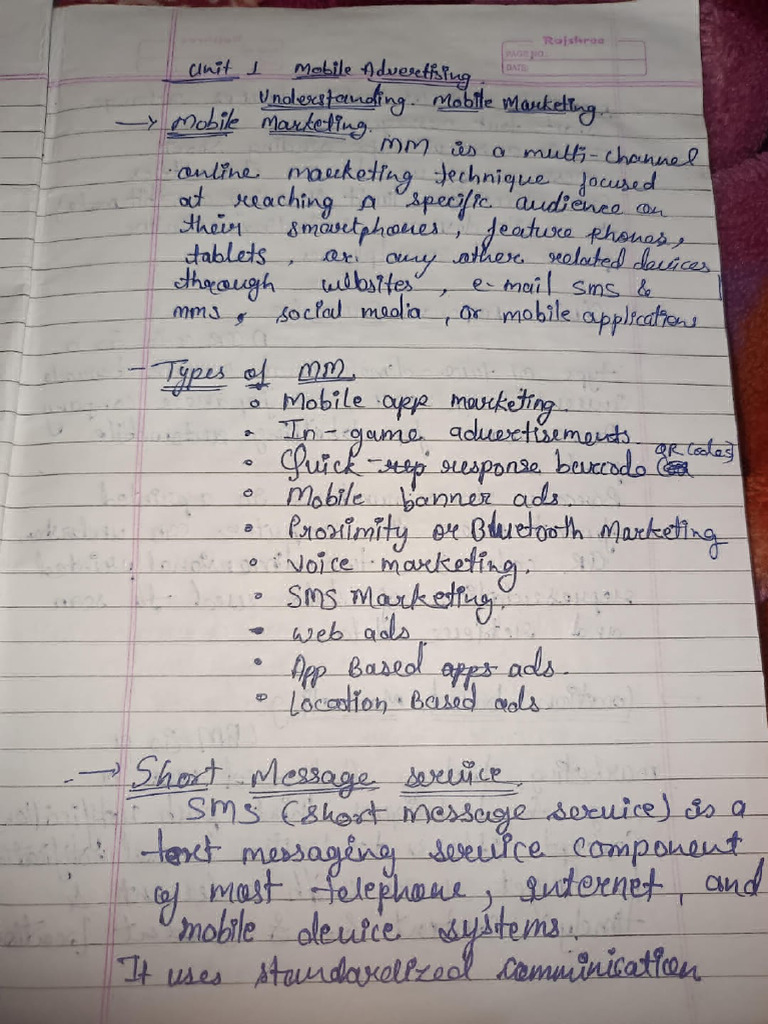 Rajshree
PAGE NO.
DATE:
Unit 1 Mobile Advertising
Understanding Mobile Marketing.
→ Mobile Marketing.
MM is a multi-channel
online marketing technique focused
at reaching a specific audience on
their smartphones, feature phones,
tablets, or any other related devices
through websites, e-mail SMS &
mms, social media, or mobile applications
- Types of MM
• Mobile app marketing.
• In-game advertisements
• Quick-rep response barcode (QR Codes)
• Mobile banner ads.
• Proximity or Bluetooth Marketing
• Voice marketing.
• SMS Marketing.
• web ads
• App Based apps ads.
• Location Based ads
→ Short Message service
SMS (short message service) is a
text messaging service component
of most telephone, internet, and
mobile device systems.
It uses standardized communication